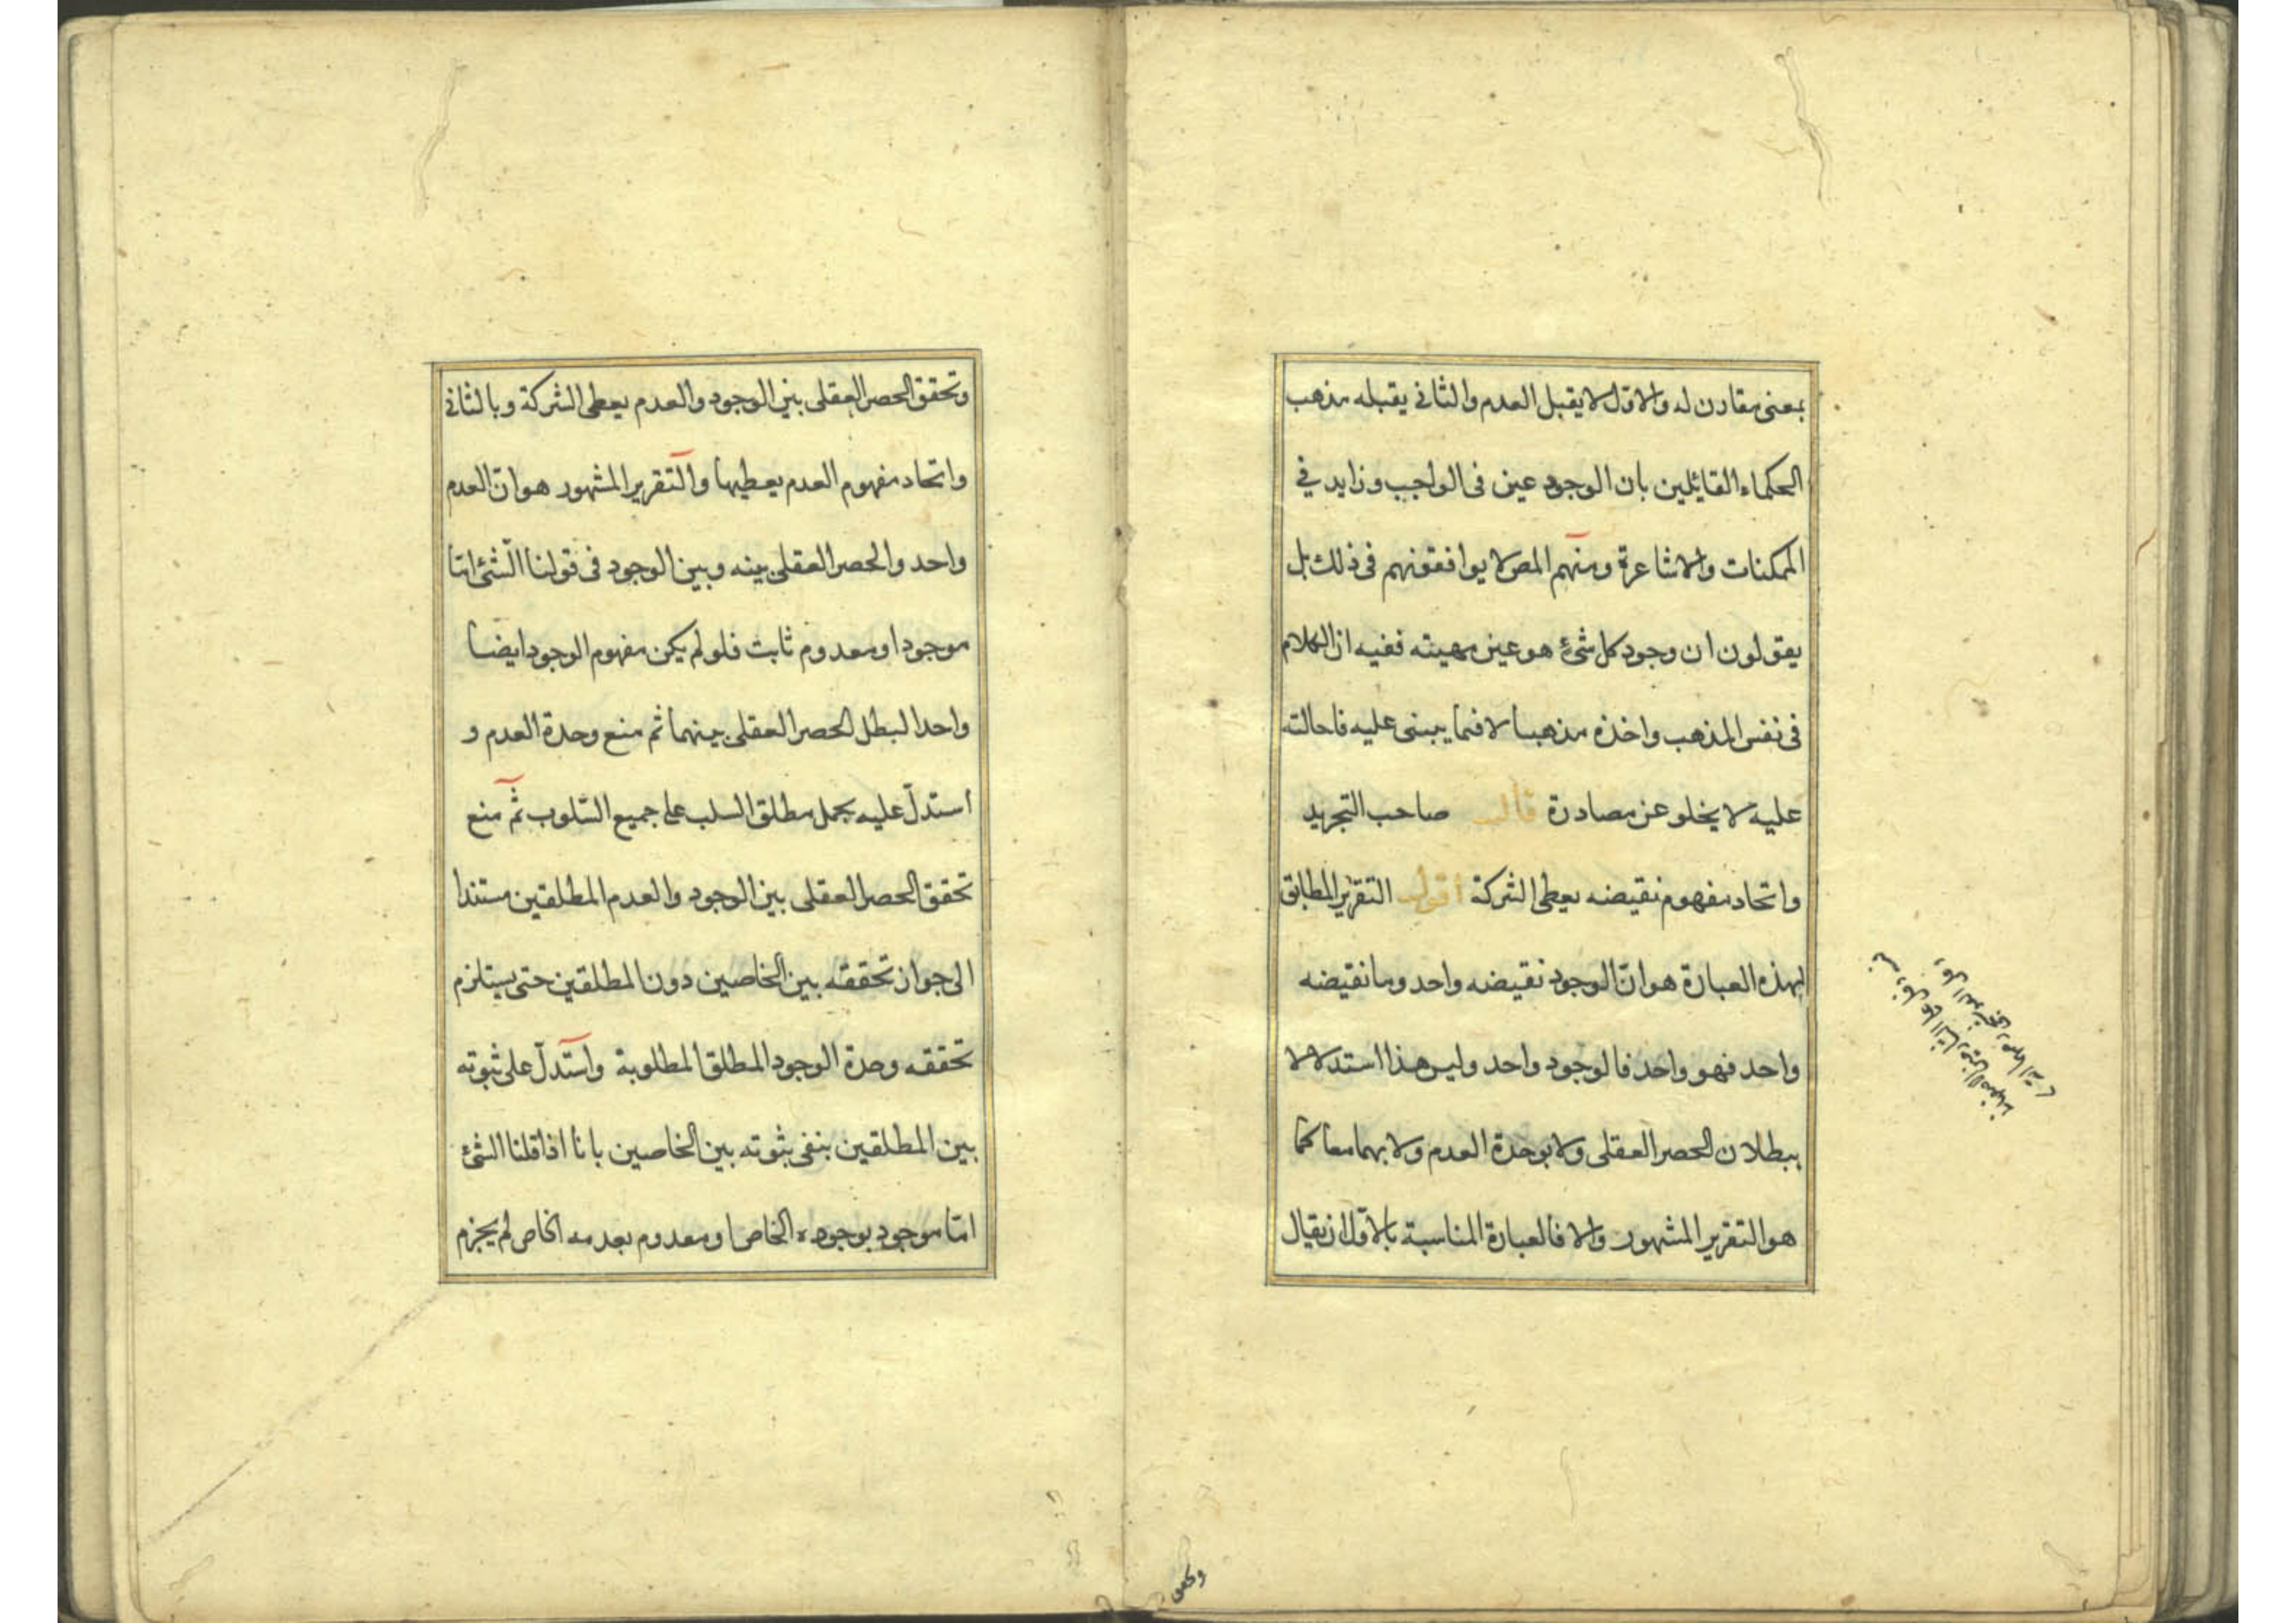 بمعنى مقارن له والاول لا يقبل العدم والثانى يقبله مذهب
الحكماء القايلين بان الوجود عين فى الواجب وزايد في
الممكنات والاشاعرة ومنهم المص لا يوافقونهم فى ذلك بل
يقولون ان وجود كل شئ هو عين مهيته ففيه ان الكلام
فى نفس المذهب واخذه مذهبا لا فيما يبنى عليه فاحالته
عليه لا يخلو عن مصادرة قال صاحب التجريد
واتحاد مفهوم نقيضه يعطى الشركة اقول التقرير المطابق
لهذه العبارة هو ان الوجود نقيضه واحد وما نقيضه
واحد فهو واحد فالوجود واحد وليس هذا استدلالا
ببطلان الحصر العقلى ولا بوحدة العدم ولا بهما معا كما
هو التقرير المشهور والا فالعبارة المناسبة بالاول ان يقال
وتحقق
وتحقق الحصر العقلى بين الوجود والعدم يعطى الشركة وبالثانى
واتحاد مفهوم العدم يعطيها والتقرير المشهور هو ان العدم
واحد والحصر العقلى بينه وبين الوجود فى قولنا الشئ اما
موجود او معدوم ثابت فلو لم يكن مفهوم الوجود ايضا
واحدا لبطل الحصر العقلى بينهما ثم منع وحدة العدم و
استدل عليه بحمل مطلق السلب على جميع السلوب ثم منع
تحقق الحصر العقلى بين الوجود والعدم المطلقين مستندا
الى جواز تحققه بين الخاصين دون المطلقين حتى يستلزم
تحققه وحدة الوجود المطلق المطلوبة واستدل على ثبوته
بين المطلقين بنفى ثبوته بين الخاصين بانا اذا قلنا الشئ
اما موجود بوجوده الخاص او معدوم بعدمه الخاص لم يجزم